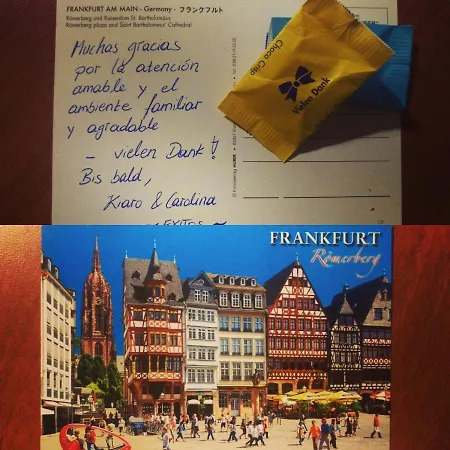 FRANKFURT AM MAIN - Germany - フランクフルト
Römerberg und Kaiserdom St. Bartholomäus
Römerberg plaza and Saint Bartholomeus' Cathedral
Muchas gracias
por la atención
amable y el
ambiente familiar
y agradable
– vielen Dank!
Bis bald,
Kiaro & Carolina
EXITOS ~
Choco Crisp
Vielen Dank
FRANKFURT
Römerberg